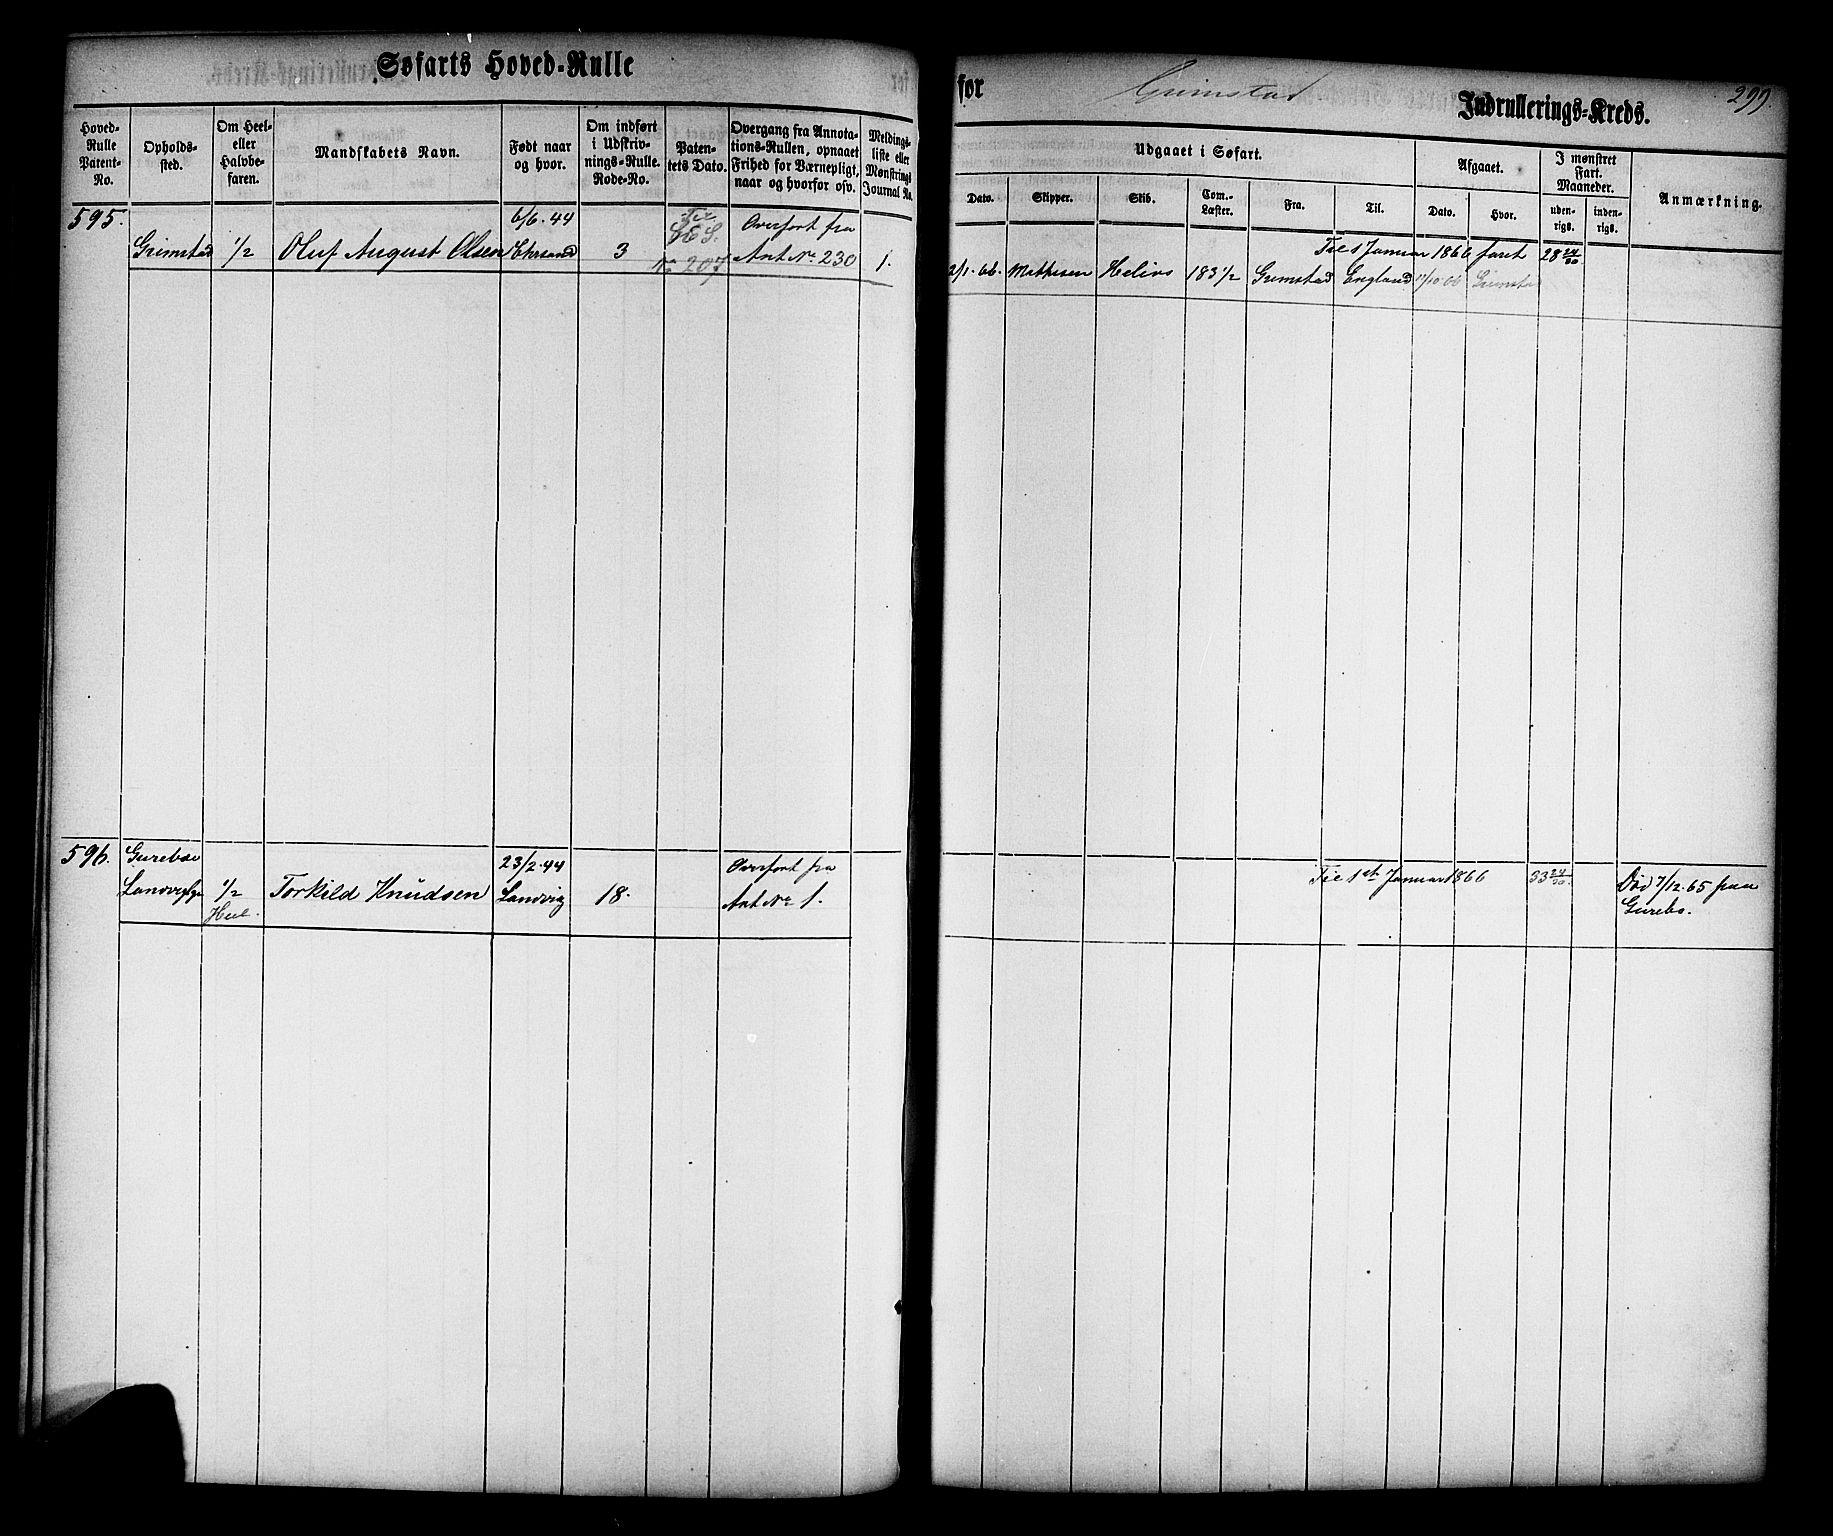 Søfarts Hoved-Rulle
for Grimstad Indrullerings-Kreds.
299.
Hoved-
Rulle
Patent-
No.
Opholds-
sted.
Om Heel-
eller
Halvbe-
faren.
Mandskabets Navn.
Født naar
og hvor.
Om indført
i Udskriv-
nings-Rulle.
Rode-No.
Paten-
tets Dato.
Overgang fra Annota-
tions-Rullen, opnaaet
Frihed for Værnepligt,
naar og hvorfor osv.
Meldings-
liste eller
Mønstrings
Journal No.
Udgaaet i Søfart.
Dato.
Skipper.
Skib.
Com.-
Læster.
Fra.
Til.
Afgaaet.
Dato.
Hvor.
I mønstret
Fart.
Maaneder.
uden-
rigs.
inden-
rigs.
Anmærkning.
595.
Grimstad
1/2
Oluf August Olsen
6/6.44
Chrsand
3
Til
S.
No 207
Overført fra
Ant No 230
1.
Til 1 Januar 1866 faret
28 24/30
2/1.66.
Mathisen
Helios
183 1/2
Grimstad
England
11/10 66
Grimstad
596.
Gurebo
Landvig
1/2
Heel.
Torkild Knudsen
23/2.44
Landvig
18.
Overført fra
Ant No 1.
Til 1st Januar 1866
33 24/30.
Død 7/12.65 paa
Gurebo.